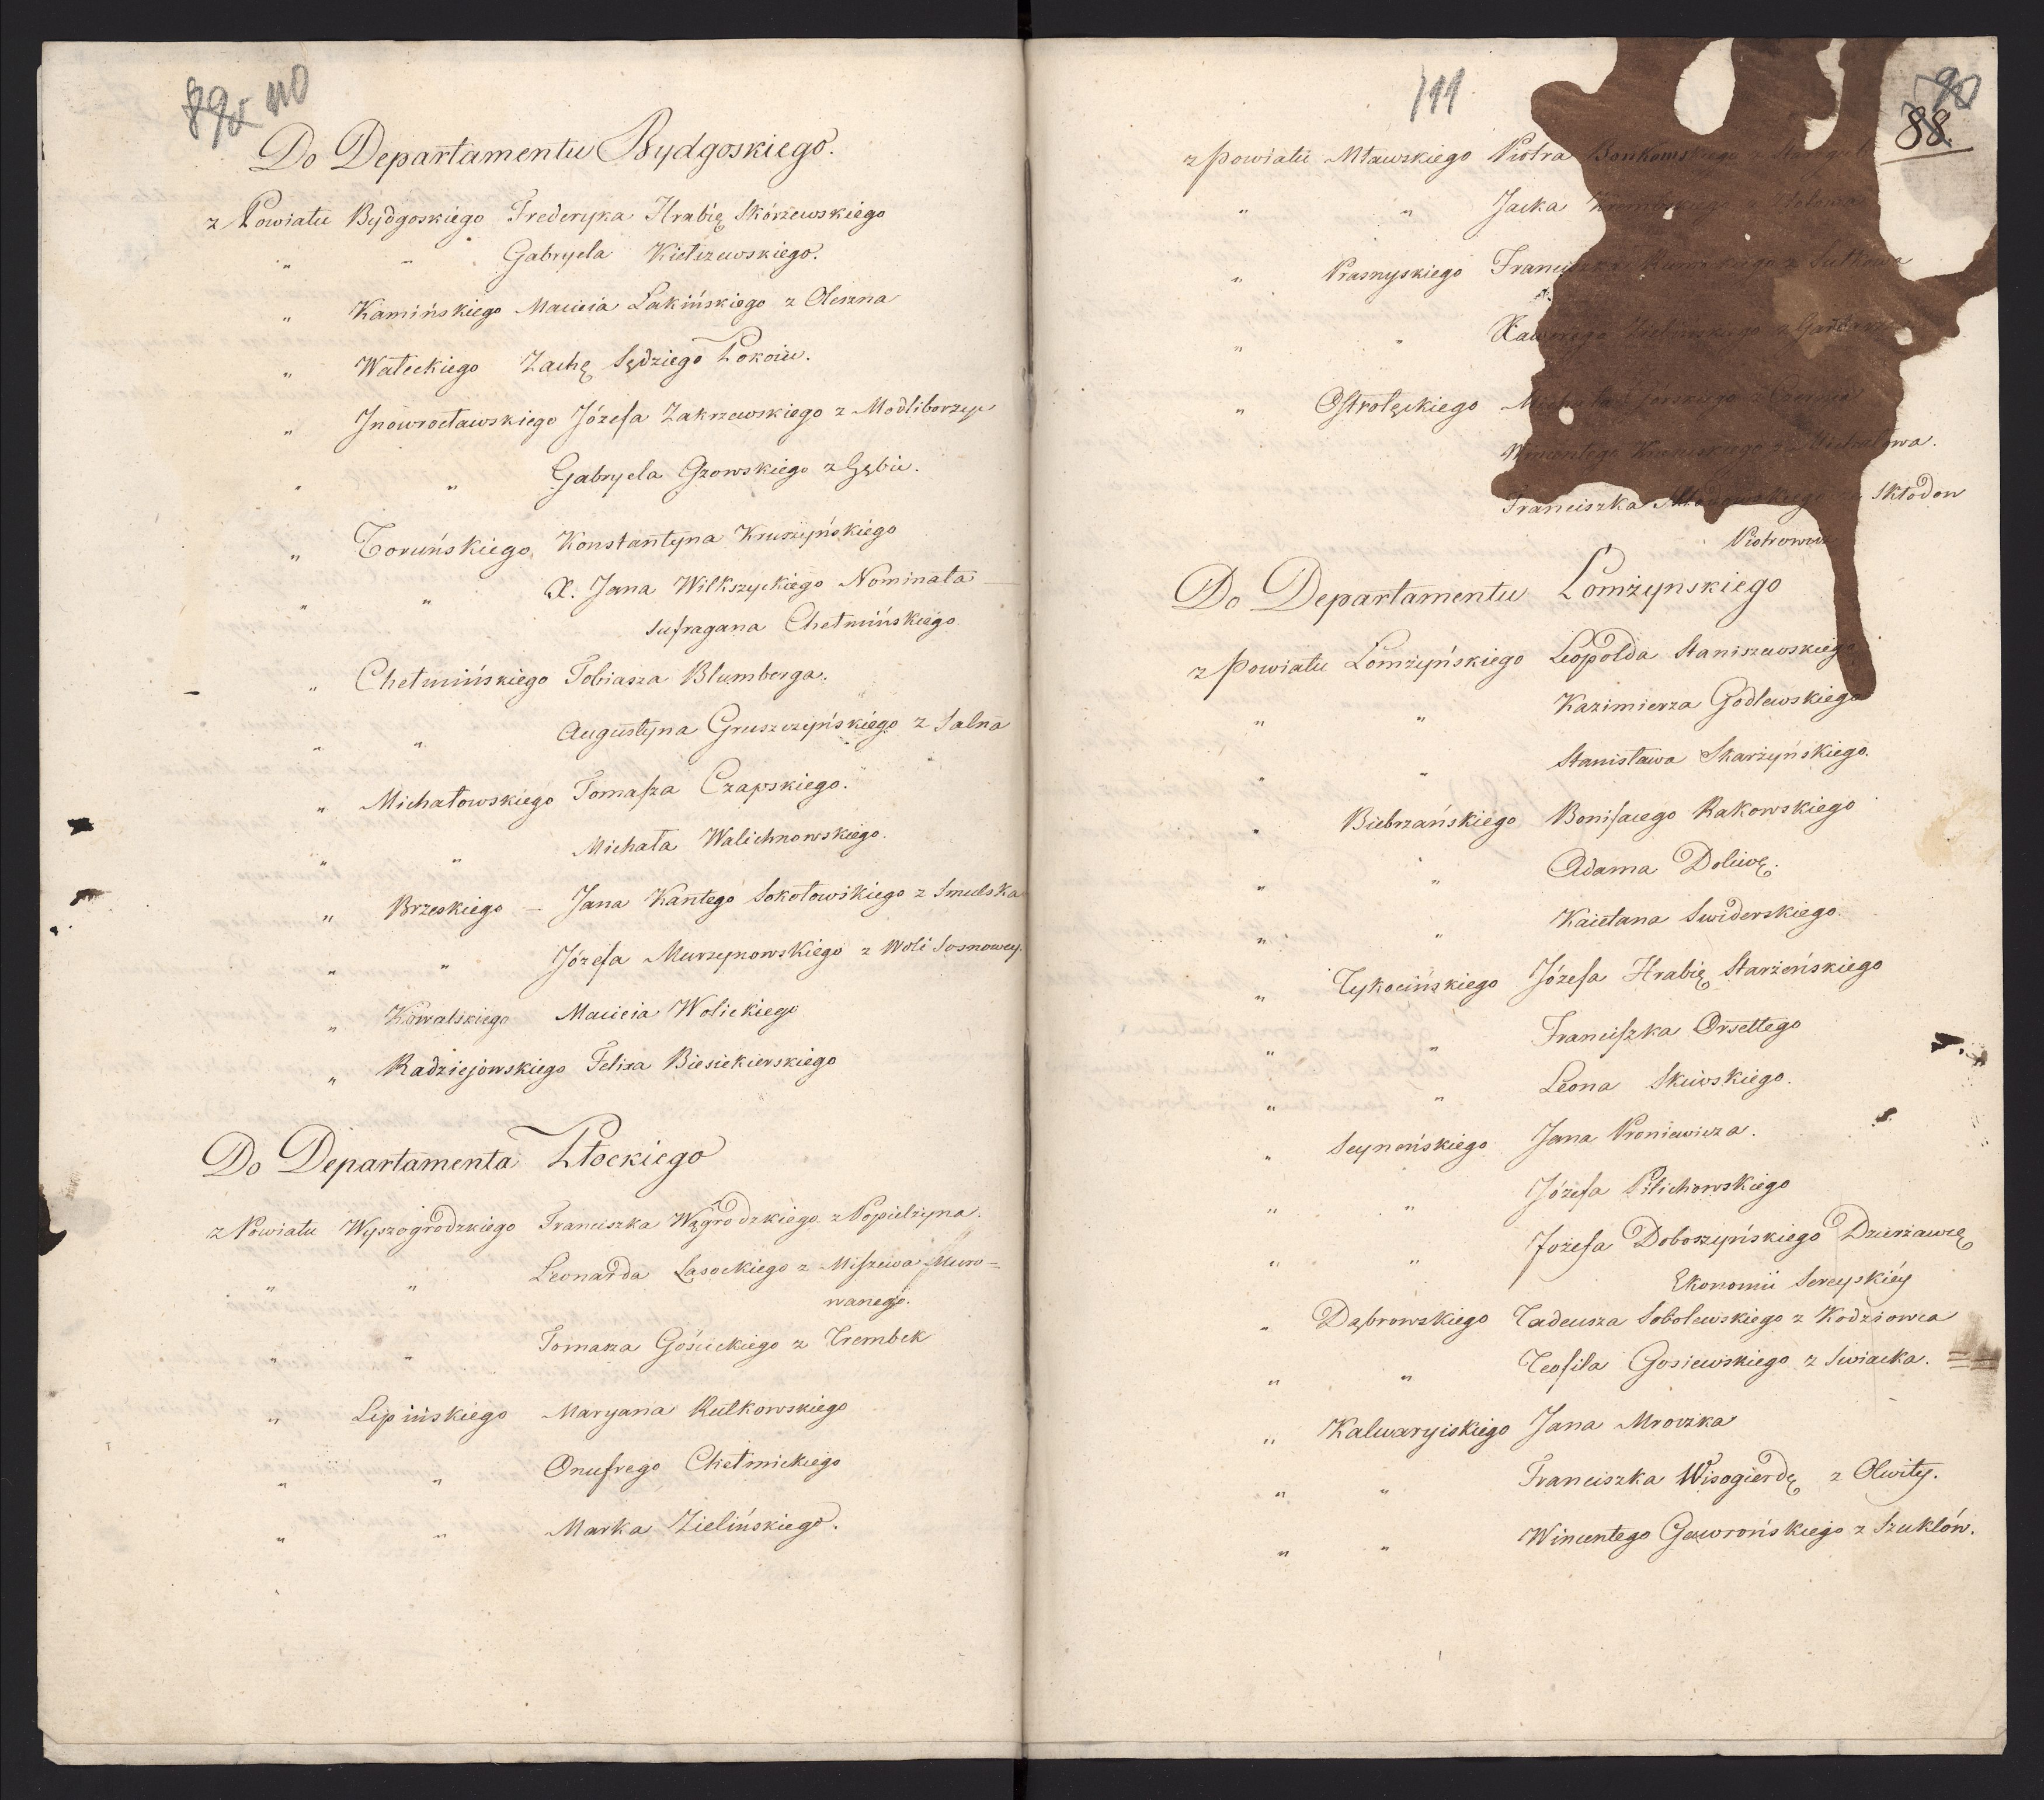 89 110
Do Departamentu Bydgoskiego.
z Powiatu Bydgoskiego Frederyka Hrabię Skórzewskiego
" " Gabryela Kiełszewskiego.
" Kamińskiego Macieia Łakińskiego z Oleszna
" Wałeckiego Zachę Sędziego Pokoiu.
" Jnowrocławskiego Józefa Zakrzewskiego z Modliborzyc
" " Gabryela Gzowskiego z Gębic.
" Toruńskiego Konstantyna Kruszyńskiego
" " X. Jana Wilkszyckiego Nominata
Sufragana Chełmińskiego
" Chełmińskiego Tobiasza Blumberga.
" " Augustyna Gruszczyńskiego z Salna
" Michałowskiego Tomasza Czapskiego.
" " Michała Walichnowskiego.
" Brzeskiego – Jana Kantego Sokołowskiego z Smulska
" " Józefa Murzynowskiego z Woli Sosnowey.
" Kowalskiego Macieia Wolickiego
" Radziejowskiego Felixa Biesiekierskiego
Do Departamenta Płockiego
z Powiatu Wyszogrodzkiego Franciszka Wągrodzkiego z Popielżyna.
" " Leonarda Lasockiego z Miszewa Muro=
wanego.
" " Tomasza Gościckiego z Trembek
" Lipińskiego Maryana Rutkowskiego
" " Onufrego Chełmickiego
" " Marka Zielińskiego.
111 90
88.
z Powiatu Mławskiego Piotra Bonkowskiego z
" " Jacka
" Prasnyskiego Franciszka z Sułkowa
" " Xawerego Zielińskiego z
" Ostrołęckiego Michała
Wincentego z Michałowa.
Franciszka z Skłodow
Piotrowic
Do Departamentu Łomżynskiego
z Powiatu Łomżyńskiego Leopolda Staniszewskiego
" " Kazimierza Godlewskiego
" " Stanisława Skarżyńskiego.
" Biebrzańskiego Bonifacego Rakowskiego
" " Adama Doliwę.
" " Kaietana Swiderskiego.
" Tykocińskiego Józefa Hrabię Starzeńskiego
" " Franciszka Orsettego
" " Leona Skiwskiego.
" Seyneńskiego Jana Proniewicza.
" " Józefa Pilichowskiego
" " Jozefa Doboszyńskiego Dzierżawcę
Ekonomii Sereyskiéy
" Dąbrowskiego Tadeusza Sobolewskiego z Kodziowca
" " Teofila Gosiewskiego z Swiacka.
" Kalwaryiskiego Jana Mrozka
" " Franciszka Wisogierdę z Olwity.
" " Wincentego Gawrońskiego z Szuklów.